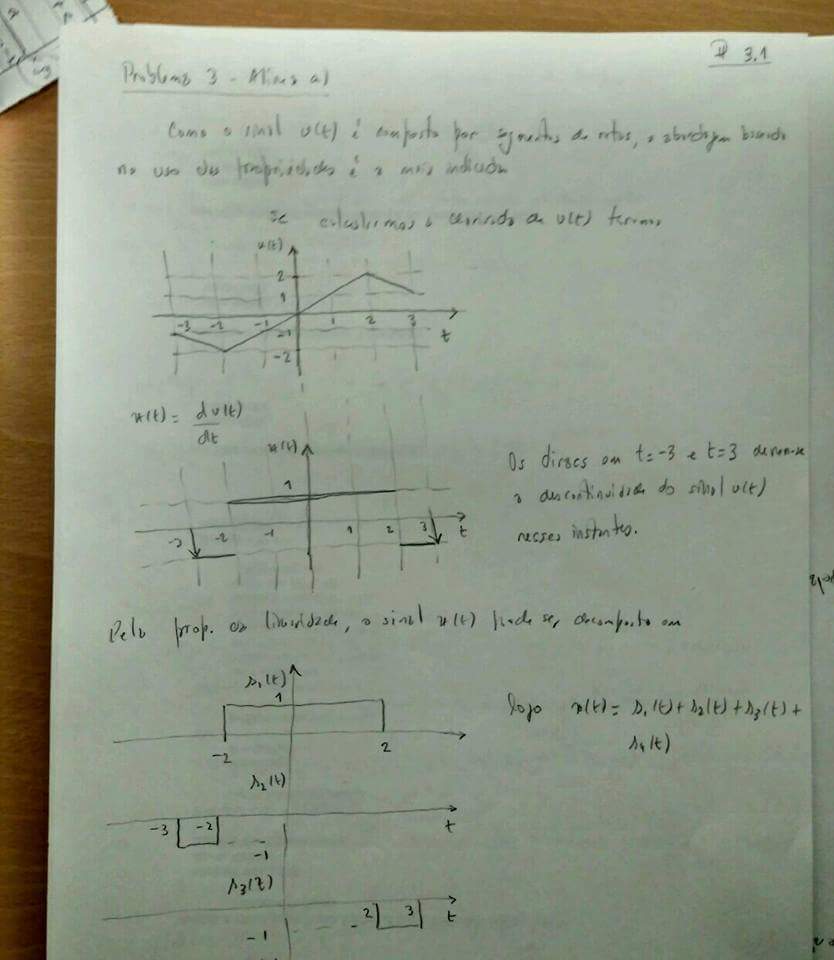 # 3.1
Problema 3 - Alínea a)
Como o sinal v(t) é composto por segmentos de retas, a abordagem baseada
no uso das propriedades é a mais indicada
Se calcularmos a derivada de v(t) teremos
v(t)
2
1
-3 -2 -1 1 2 3
-1
t
-2
x(t) = dv(t)
dt
x(t)
Os diracs em t=-3 e t=3 devem-se
1
a descontinuidade do sinal v(t)
-3 -2 -1 1 2 3 t
nesses instantes.
Pela prop. da linearidade, o sinal x(t) pode ser decomposto em
s1(t)
1
logo x(t) = s1(t) + s2(t) + s3(t) +
s4(t)
-2 2
s2(t)
-3 -2 t
-1
s3(t)
2 3 t
-1